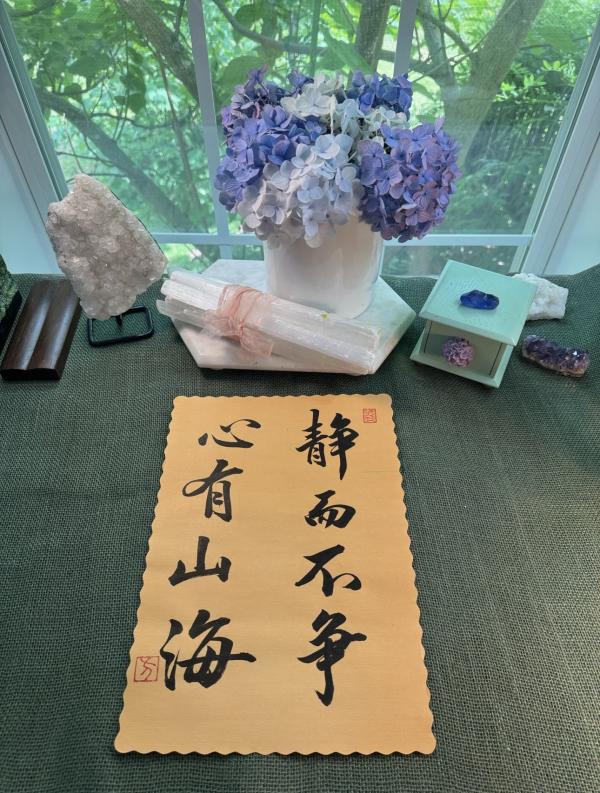 静而不争
心有山海